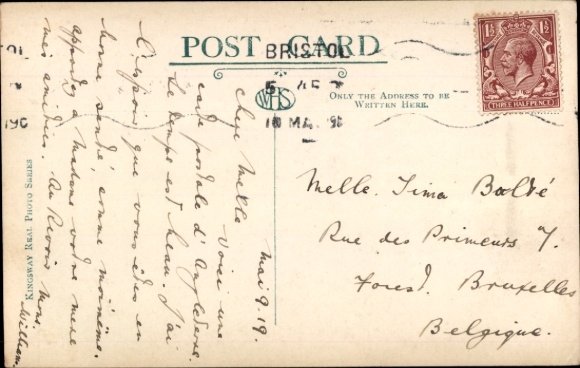 POST CARD
BRISTOL
5 45
10 MA
190
WHS
ONLY THE ADDRESS TO BE
WRITTEN HERE.
1½ 1½
THREE HALFPENCE
KINGSWAY REAL PHOTO SERIES
Mai 9.19.
Chez Melle Voici une
carte postale d'Angleterre.
Le temps est beau. J'ai
l'espoir que vous êtes en
bonne santé, comme moimême.
apportez à madame votre mere
mes amitiés. Au Revoir
William.
Melle. Tima Baldé
Rue des Primeurs 7.
Forest. Bruxelles
Belgique.